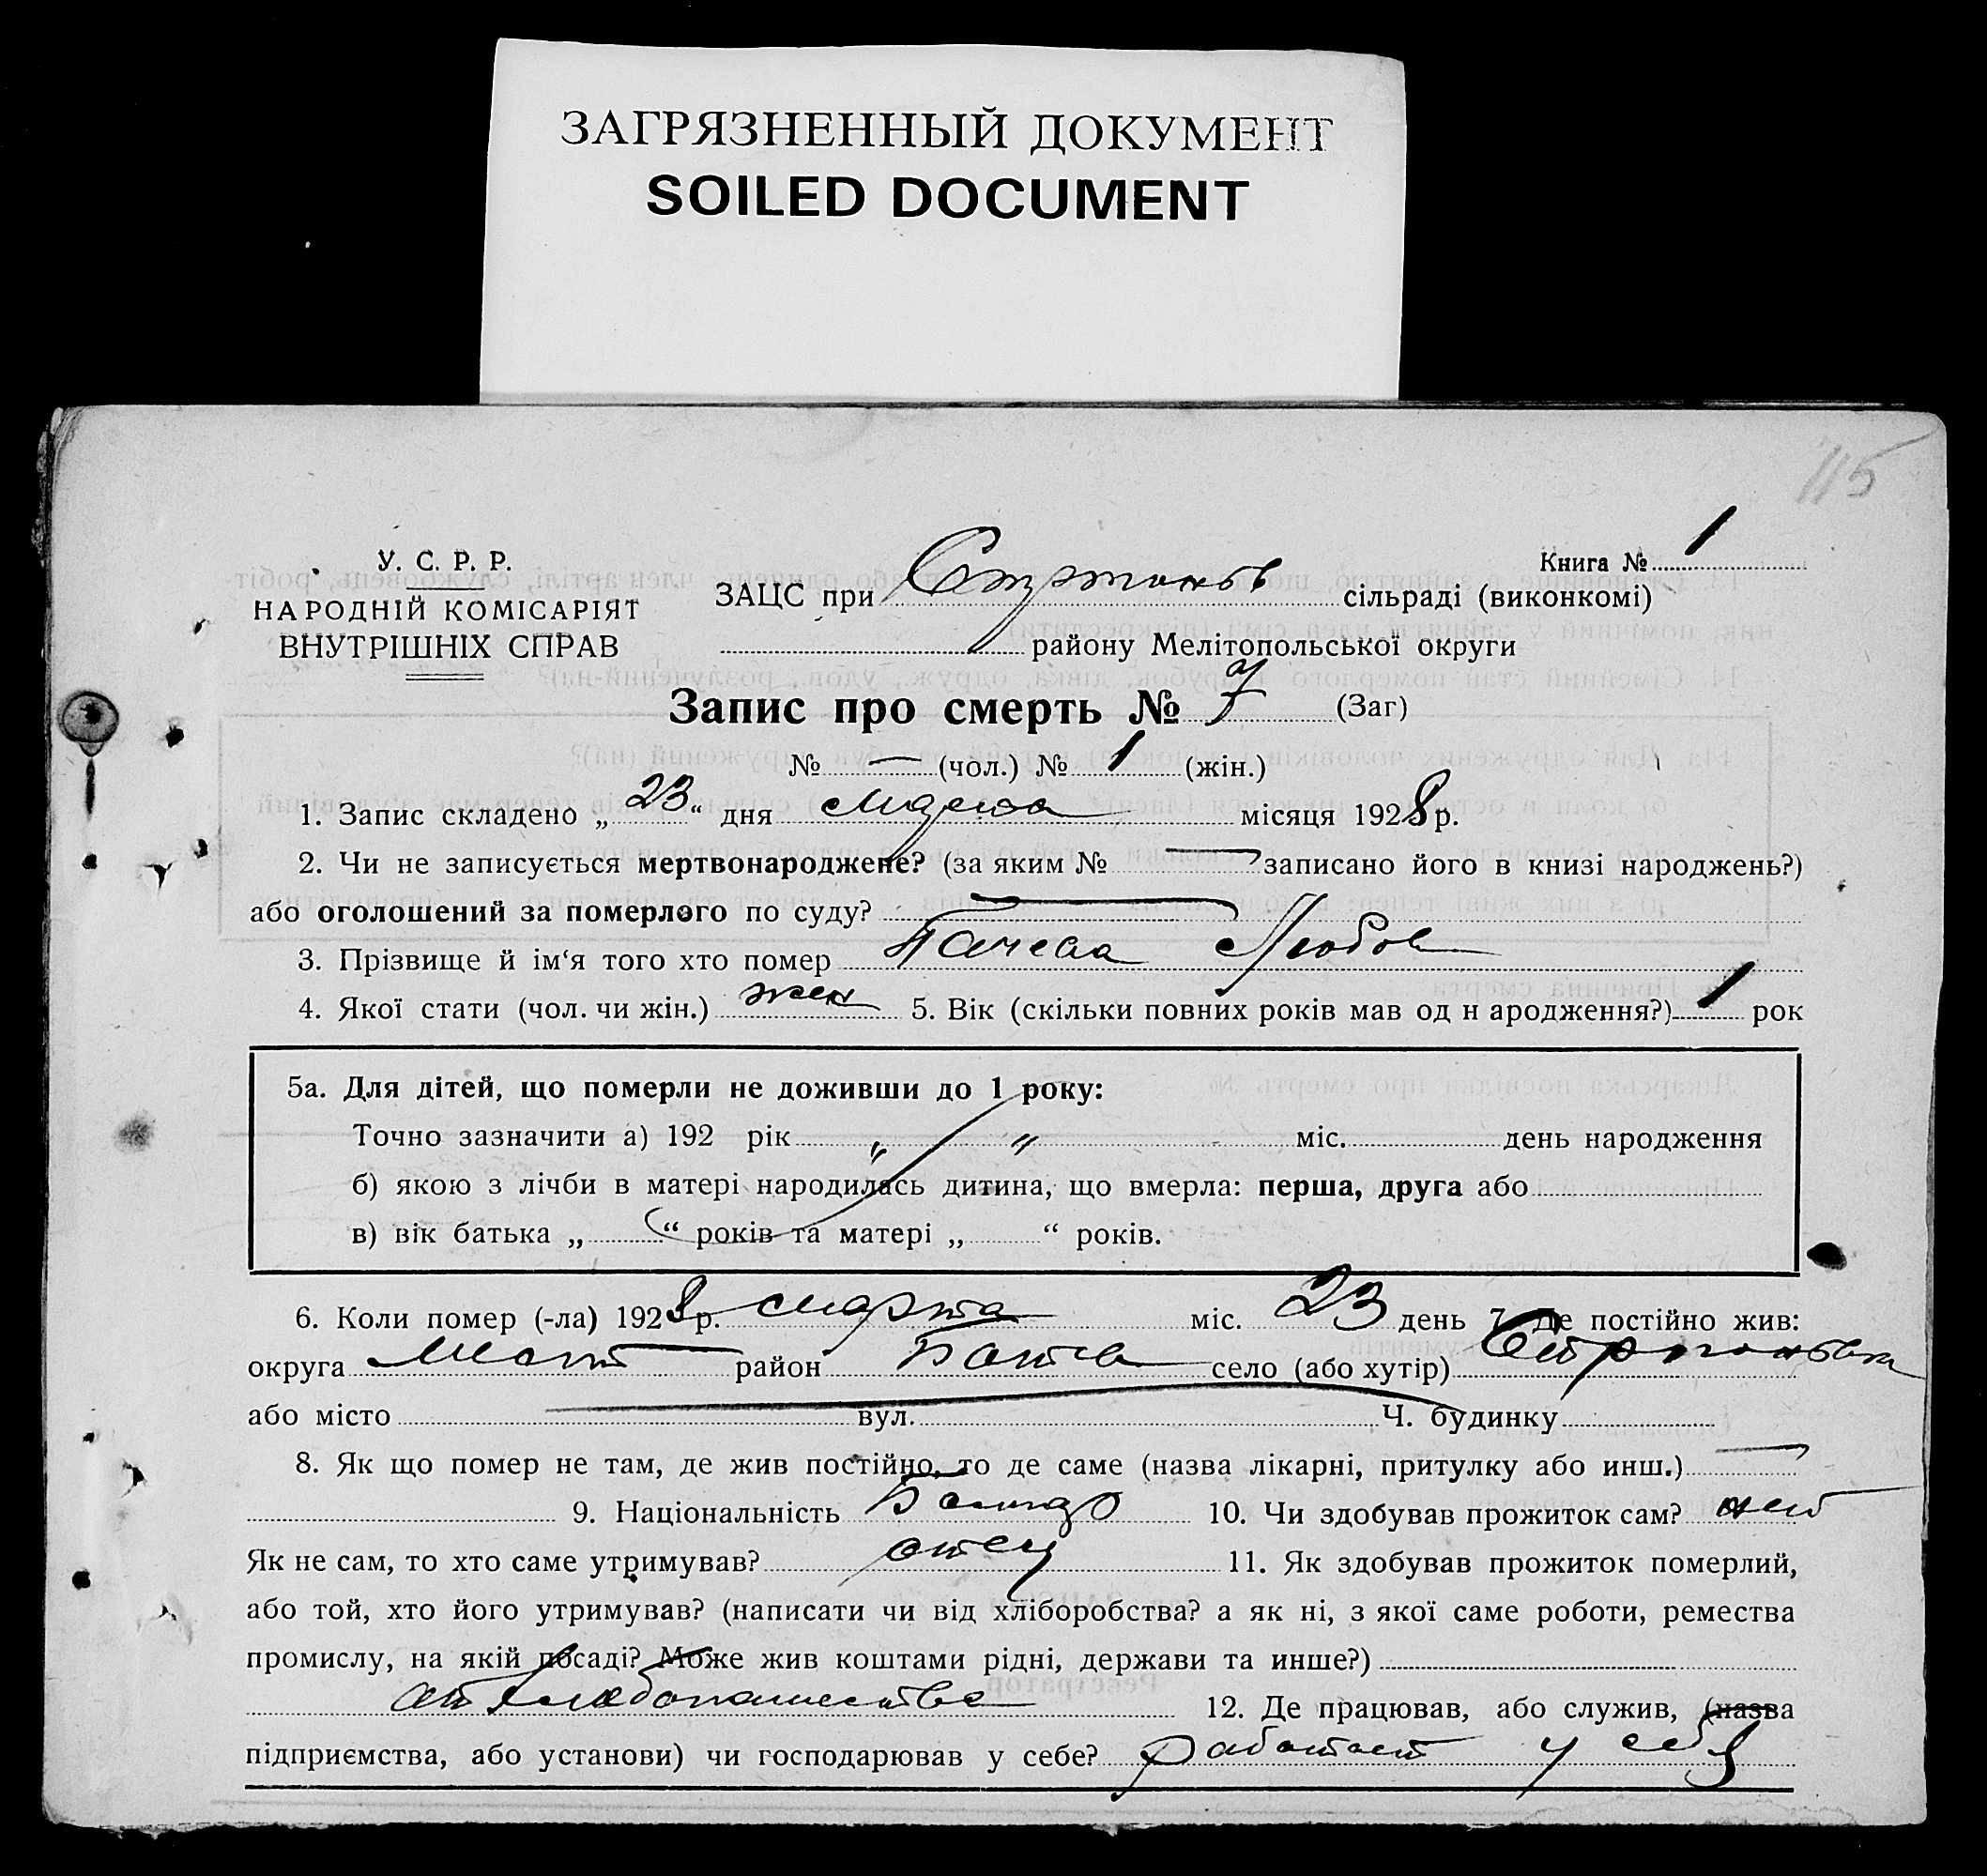 ЗАГРЯЗНЕННЫЙ ДОКУМЕНТ
SOILED DOCUMENT
115
У. С. Р. Р.
НАРОДНІЙ КОМІСАРІЯТ
ВНУТРІШНІХ СПРАВ
Книга № 1
ЗАЦС при сільраді (виконкомі)
району Мелітопольської округи
Запис про смерть № 7 (Заг)
№ — (чол.) № 1 (жін.)
1. Запис складено „ 23 “ дня марта місяця 1928 р.
2. Чи не записується мертвонароджене? (за яким № — записано його в книзі народжень?)
або оголошений за померлого по суду? —
3. Прізвище й ім‘я того хто помер Любов
4. Якої стати (чол. чи жін.) жен 5. Вік (скільки повних років мав од н ародження?) 1 рок
5а. Для дітей, що померли не доживши до 1 року:
Точно зазначити а) 192 рік „ „ міс. день народження
б) якою з лічби в матері народилась дитина, що вмерла: перша, друга або
в) вік батька „ “ років та матері „ “ років.
6. Коли помер (-ла) 1928 р. марта міс. 23 день 7. Де постійно жив:
округа Мелит район село (або хутір)
або місто — вул. Ч. будинку
8. Як що помер не там, де жив постійно, то де саме (назва лікарні, притулку або инш.) —
9. Національність Болгар 10. Чи здобував прожиток сам? нет
Як не сам, то хто саме утримував? отец 11. Як здобував прожиток померлий,
або той, хто його утримував? (написати чи від хліборобства? а як ні, з якої саме роботи, ремества
промислу, на якій посаді? Може жив коштами рідні, держави та инше?)
от хлебопашества 12. Де працював, або служив, (назва
підприємства, або установи) чи господарював у себе? работает у себя